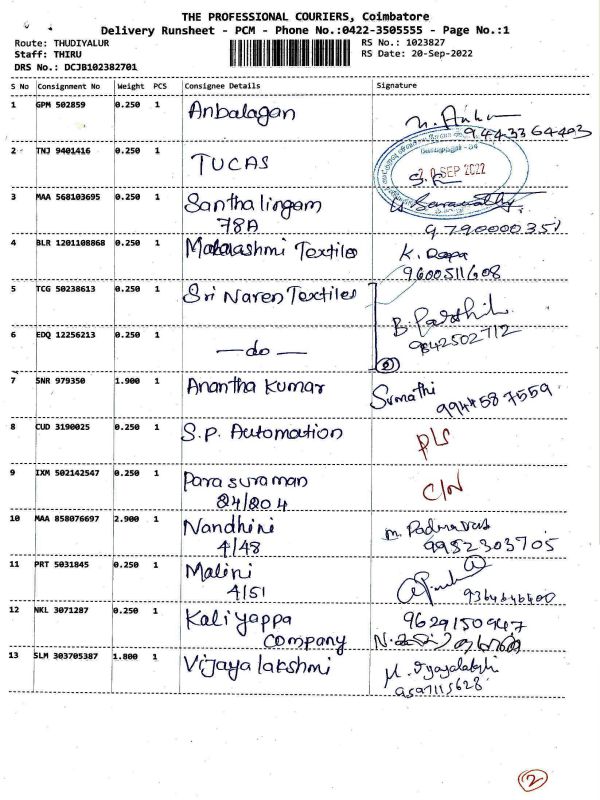 THE PROFESSIONAL COURIERS, Coimbatore
Delivery Runsheet - PCM - Phone No.:0422-3505555 - Page No.:1
Route: THUDIYALUR RS No.: 1023827
Staff: THIRU RS Date: 20-Sep-2022
DRS No.: DCJB102382701
S No Consignment No Weight PCS Consignee Details Signature
1 GPM 502859 0.250 1 Anbalagan
9443364403
2 TNJ 9401416 0.250 1 TUCAS
SEP 2022
3 MAA 568103695 0.250 1 Santhalingam
78A 9790000351
4 BLR 1201108868 0.250 1 Textiles K.
9600511608
5 TCG 50238613 0.250 1 Sri Naren Textiles
6 EDQ 12256213 0.250 1 —do— 9842502712
2
7 SNR 979350 1.900 1 Anantha Kumar Sumathi
587559
8 CUD 3190025 0.250 1 S.P. Automation
9 IXM 502142547 0.250 1 Parasuraman C/N
24/204
10 MAA 858076697 2.900 1 Nandhini
4/48 9952303705
11 PRT 5031845 0.250 1 Malini
4/51
12 NKL 3071287 0.250 1 Kaliyappa 9629150947
Company
13 SLM 303705387 1.800 1 Vijayalakshmi
9597115628
2